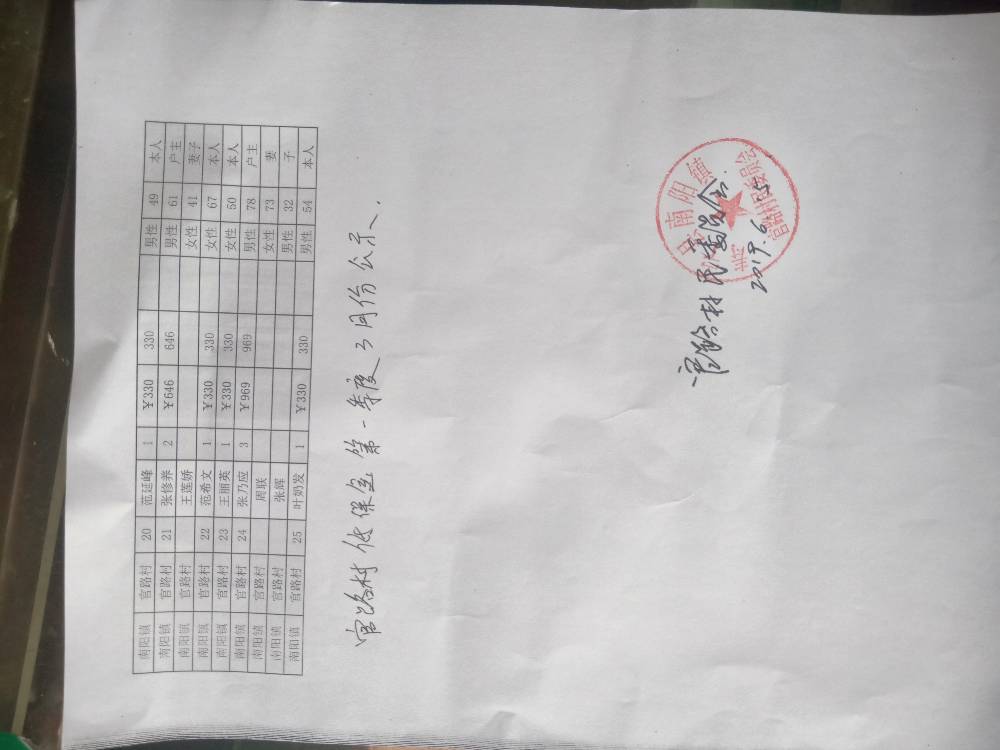 南阳镇 官路村 20 范延峰 1 ¥330 330 男性 49 本人
南阳镇 官路村 21 张修养 2 ¥646 646 男性 61 户主
南阳镇 官路村 王莲娇 女性 41 妻子
南阳镇 官路村 22 范希文 1 ¥330 330 女性 67 本人
南阳镇 官路村 23 王丽英 1 ¥330 330 女性 50 本人
南阳镇 官路村 24 张乃应 3 ¥969 969 男性 78 户主
南阳镇 官路村 周联 女性 73 妻
南阳镇 官路村 张辉 男性 32 子
南阳镇 官路村 25 叶奶发 1 ¥330 330 男性 54 本人
官路村低保金第一季度3月份公示.
官路村民委员会.
2019.6.5
南阳镇
官路村民委员会